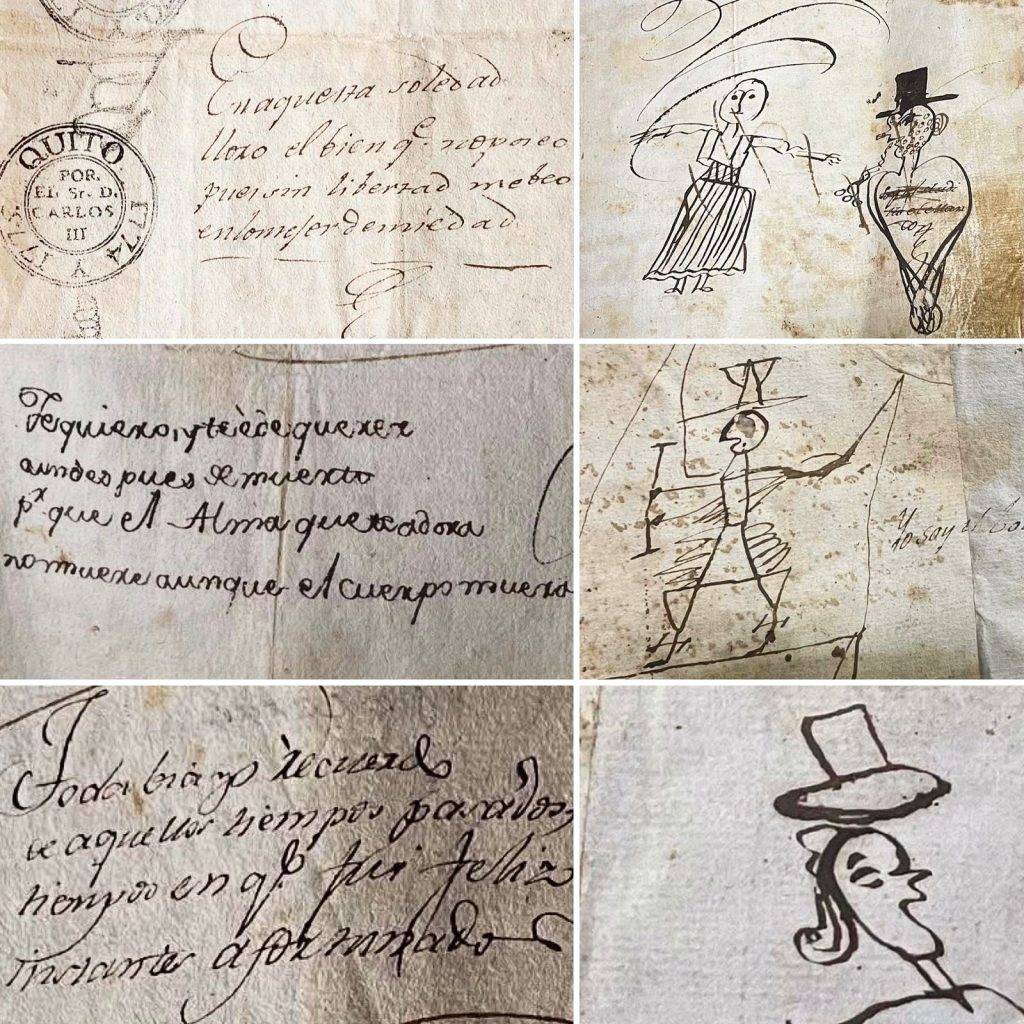 QUITO
POR
EL Sr. D.
CARLOS
III
1774 Y 177
Enaquesta soledad
lloro el bien qe. noposeo
puessin libertad mebeo
enlomejordemiedad
Tequiero, yteède querer
aundespues de muerto
pr. que el Alma queteadora
nomuere aunque el cuerpo muera
Y
Yo soy el
Todabia yo rècuerdo
de aquellos tiempos pasados,
tiempos en qe. fui feliz
instantes afortunados